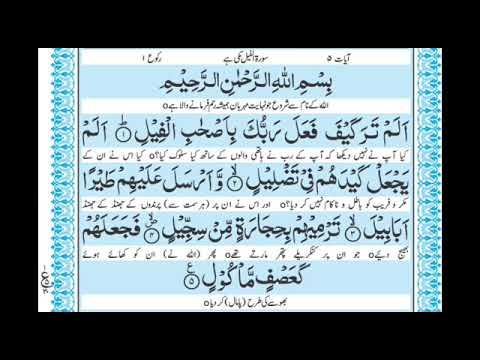 آیات ۵ سورۃ الفیل مکی ہے رکوع ۱
بِسْمِ اللهِ الرَّحْمٰنِ الرَّحِيْمِ
اللہ کے نام سے شروع جو نہایت مہربان ہمیشہ رحم فرمانے والا ہے o
اَلَمْ تَرَ كَيْفَ فَعَلَ رَبُّكَ بِاَصْحٰبِ الْفِيْلِ ؕ﴿۱﴾ اَلَمْ
کیا آپ نے نہیں دیکھا کہ آپ کے رب نے ہاتھی والوں کے ساتھ کیا سلوک کیا؟ o کیا اس نے ان کے
يَجْعَلْ كَيْدَهُمْ فِيْ تَضْلِيْلٍ ۙ﴿۲﴾ وَّ اَرْسَلَ عَلَيْهِمْ طَيْرًا
مکر و فریب کو باطل و ناکام نہیں کر دیا؟ o اور اس نے ان پر (ہر سمت سے) پرندوں کے جھنڈ کے جھنڈ
اَبَابِيْلَ ۙ﴿۳﴾ تَرْمِيْهِمْ بِحِجَارَةٍ مِّنْ سِجِّيْلٍ ۪ۙ﴿۴﴾ فَجَعَلَهُمْ
بھیج دیے o جو ان پر کنکریلے پتھر مارتے تھے o پھر (اللہ نے) ان کو کھائے ہوئے
كَعَصْفٍ مَّاْكُوْلٍ ؑ﴿۵﴾
بھوسے کی طرح (پامال) کر دیا o